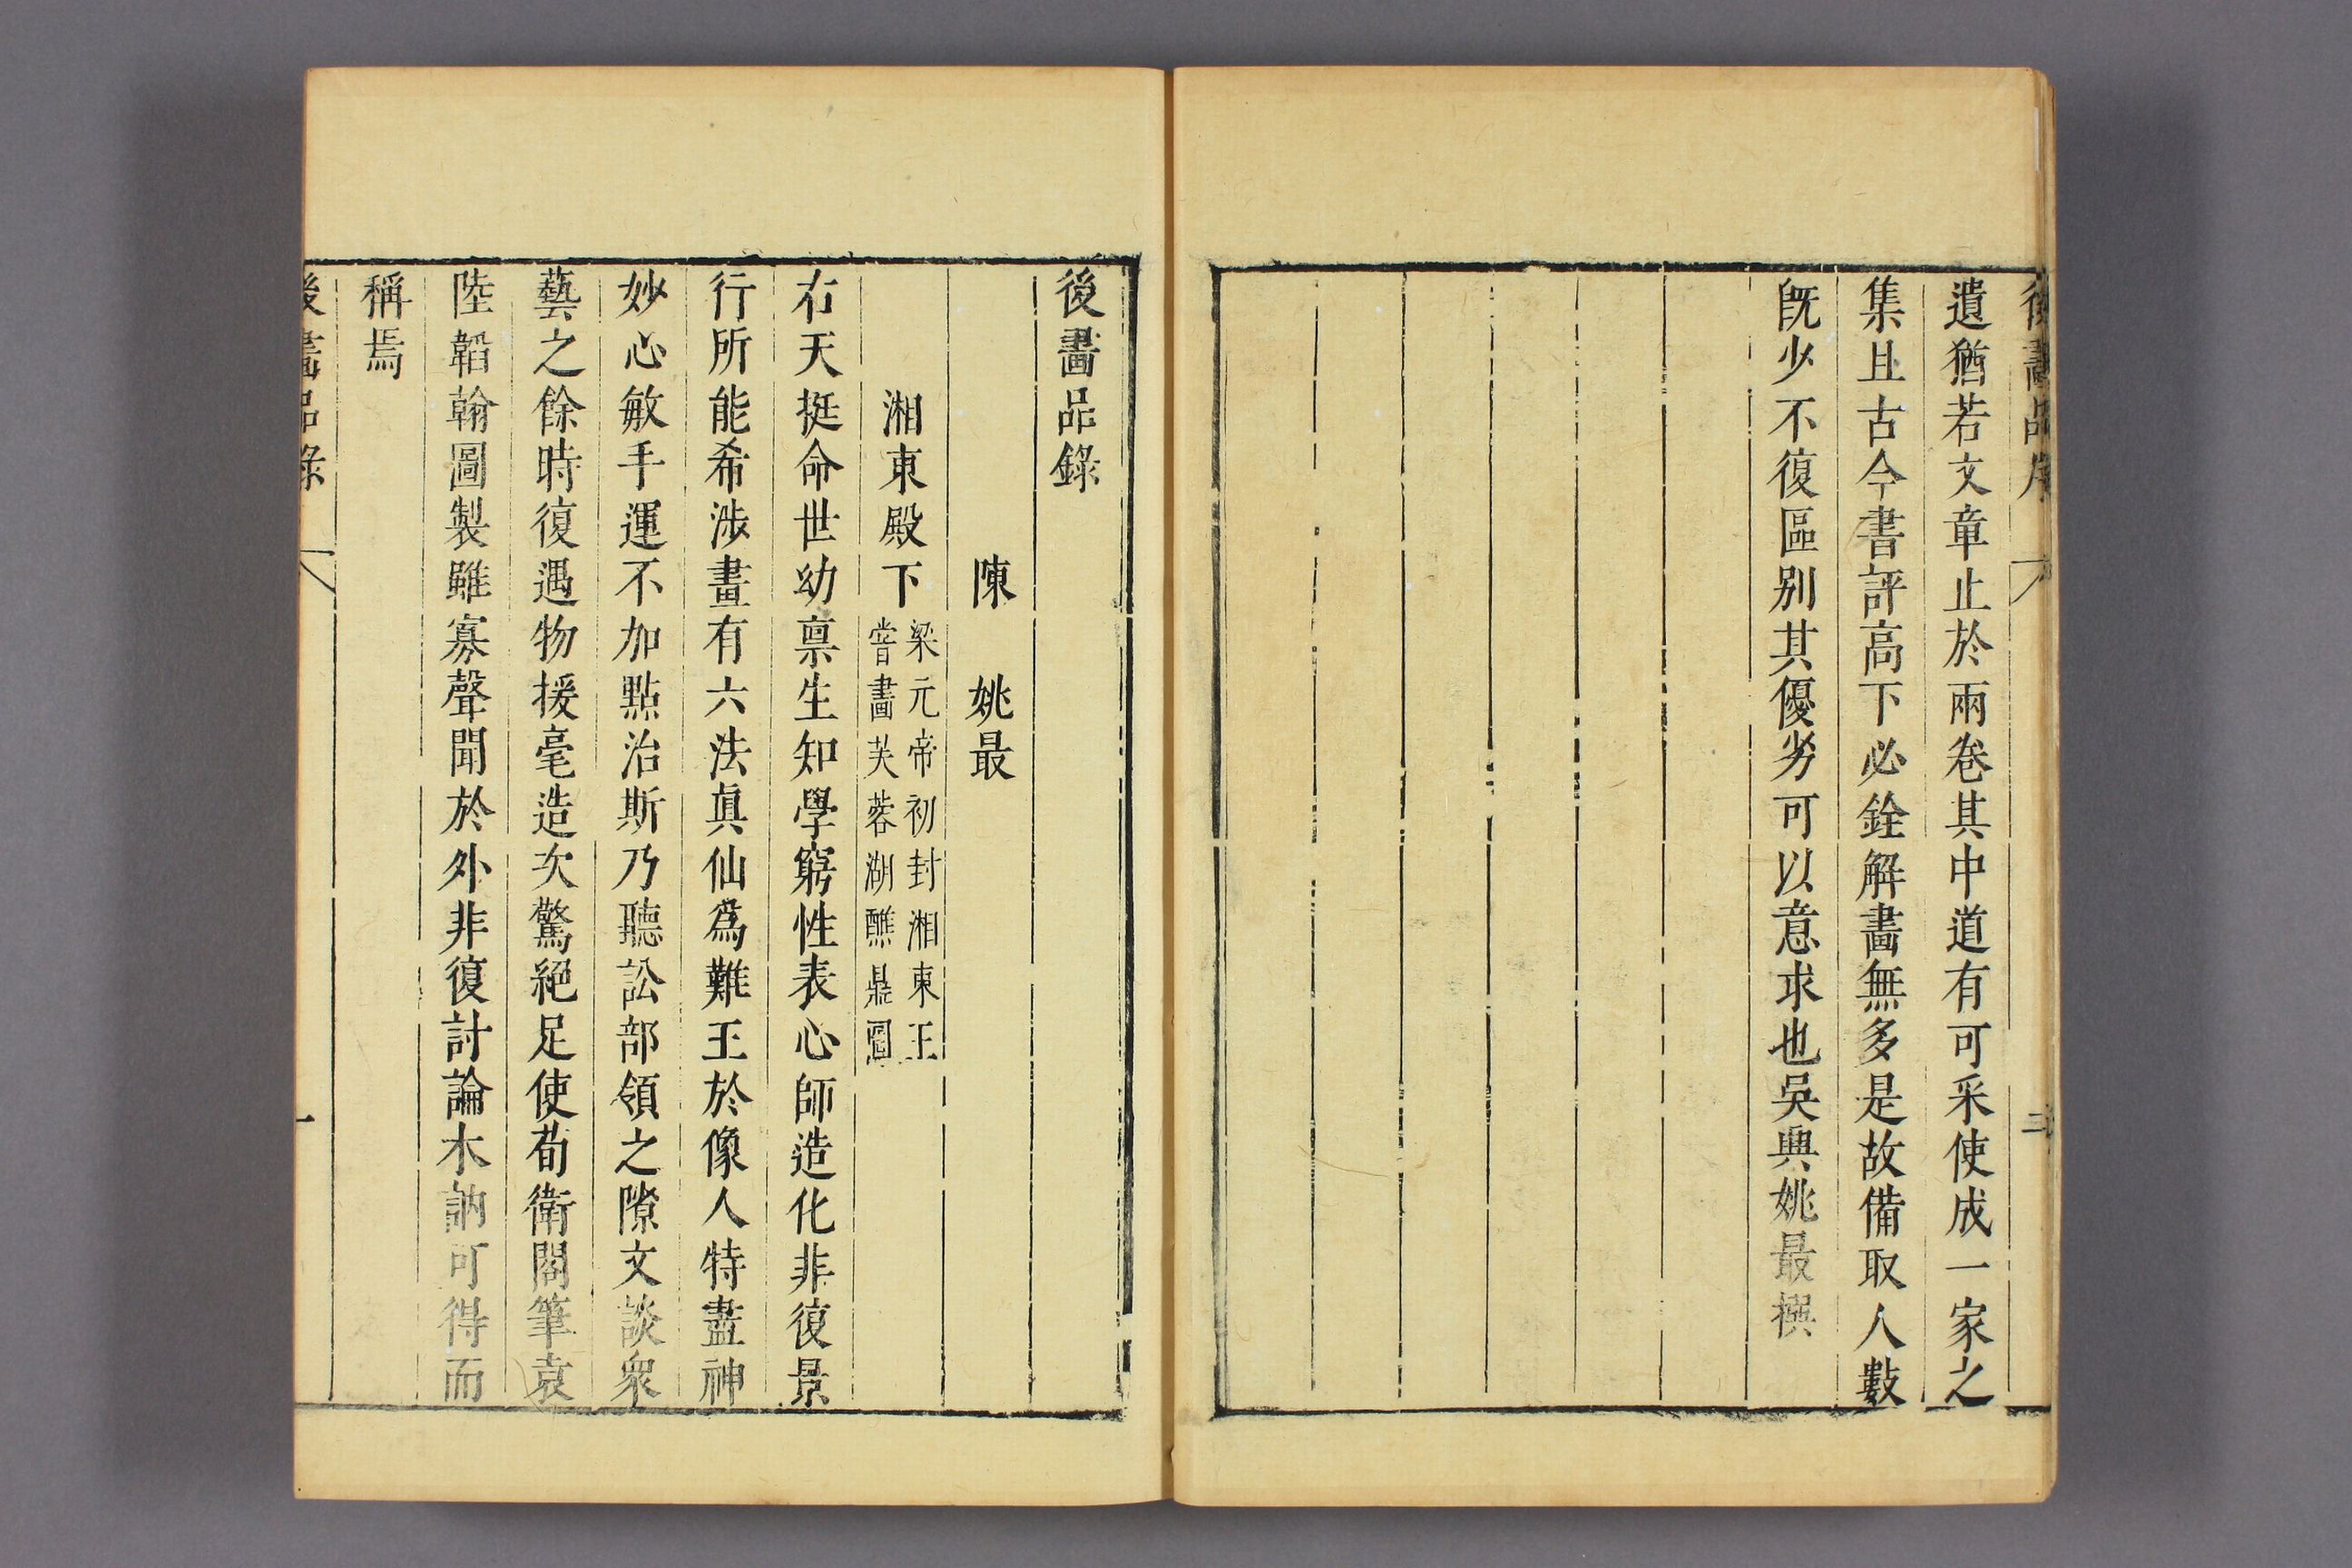 後畫品序
遺猶若文章止於兩卷其中道有可采使成一家之
集且古今書評高下必銓解畫無多是故備取人數
旣少不復區别其優劣可以意求也吳興姚最撰
後畫品錄
陳　姚最
湘東殿下
梁元帝初封湘東王
嘗畫芙蓉湖醮鼎圖
右天挺命世幼禀生知學窮性表心師造化非復景
行所能希涉畫有六法眞仙爲難王於像人特盡神
妙心敏手運不加點治斯乃聽訟部領之隙文談衆
藝之餘時復遇物援毫造次驚絕足使荀衛閣筆袁
陸韜翰圖製雖寡聲聞於外非復討論木訥可得而
稱焉
後畫品錄
一